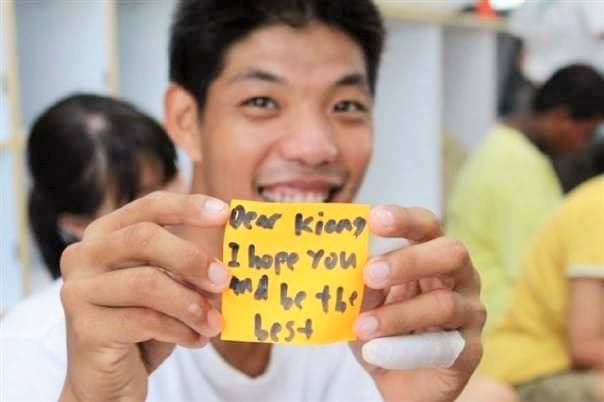 Dear Kiang
I hope you
and be the
best